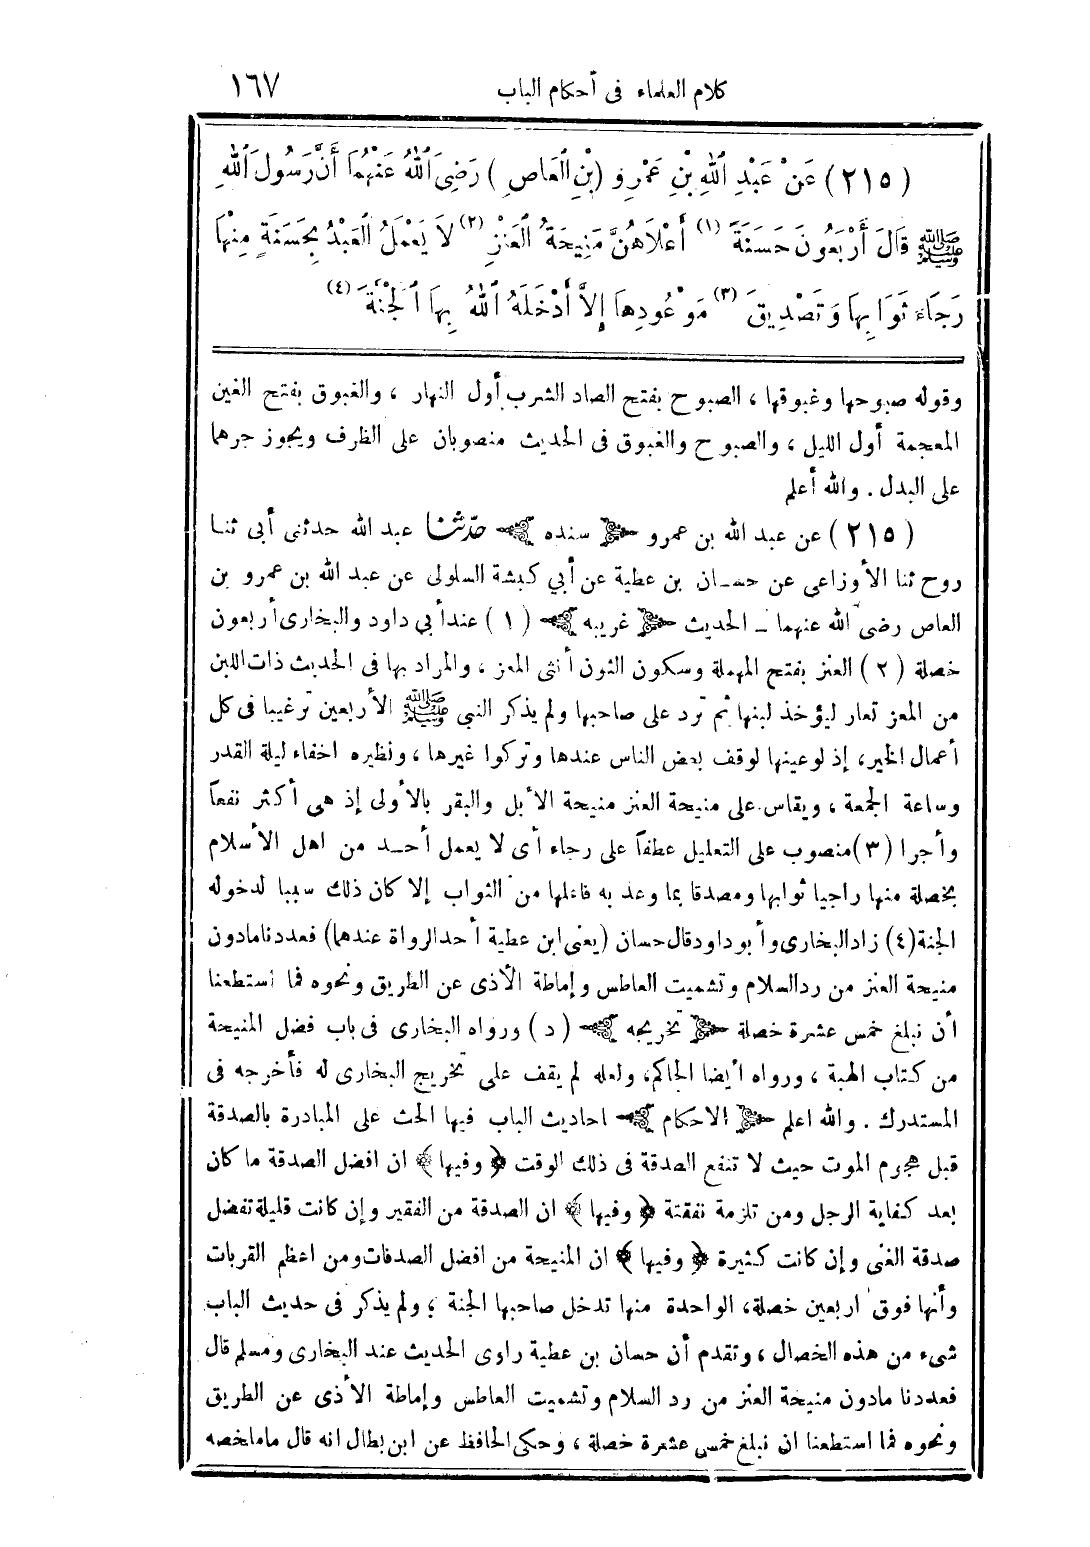 كلام العلماء فى أحكام الباب ١٦٧
(٢١٥) عَنْ عَبْدِ اللهِ بْنِ عَمْرِو (بْنِ الْعَاصِ) رَضِىَ اللهُ عَنْهُمَا أَنَّ رَسُولَ اللهِ
ﷺ قَالَ أَرْبَعُونَ حَسَنَةً (١) أَعْلَاهُنَّ مَنِيحَةُ الْعَنْزِ (٢) لَا يَعْمَلُ الْعَبْدُ بِحَسَنَةٍ مِنْهَا
رَجَاءَ ثَوَابِهَا وَتَصْدِيقَ (٣) مَوْعُودِهَا إِلَّا أَدْخَلَهُ اللهُ بِهَا الْجَنَّةَ (٤)
وقوله صبوحها وغبوقها ، الصبوح بفتح الصاد الشرب أول النهار ، والغبوق بفتح الغين
المعجمة أول الليل ، والصبوح والغبوق فى الحديث منصوبان على الظرف ويجوز جرهما
على البدل . والله أعلم
(٢١٥) عن عبد الله بن عمرو ﴿ سنده ﴾ حدّثنا عبد الله حدثنى أبى ثنا
روح ثنا الأوزاعى عن حسان بن عطية عن أبي كبشة السلولى عن عبد الله بن عمرو بن
العاص رضى الله عنهما ــ الحديث ﴿ غريبه ﴾ (١) عند أبي داود والبخارى أربعون
خصلة (٢) العنز بفتح المهملة وسكون النون أنثى المعز ، والمراد بها فى الحديث ذات اللبن
من المعز تعار ليؤخذ لبنها ثم ترد على صاحبها ولم يذكر النبى ﷺ الأربعين ترغيبا فى كل
أعمال الخير، إذ لو عينها لوقف بعض الناس عندها وتركوا غيرها ، ونظيره اخفاء ليلة القدر
وساعة الجمعة ، ويقاس على منيحة العنز منيحة الأبل والبقر بالأولى إذ هى أكثر نفعاً
وأجرا (٣) منصوب على التعليل عطفاً على رجاء أى لا يعمل أحد من اهل الأسلام
بخصلة منها راجيا ثوابها ومصدقا بما وعد به فاعلها من الثواب إلا كان ذلك سببا لدخوله
الجنة (٤) زاد البخارى وأبو داود قال حسان (يعنى ابن عطية أحد الرواة عندهما) فعددنا مادون
منيحة العنز من رد السلام وتشميت العاطس وإماطة الأذى عن الطريق ونحوه فما استطعنا
أن نبلغ خمس عشرة خصلة ﴿ تخريجه ﴾ (د) ورواه البخارى فى باب فضل المنيحة
من كتاب الهبة ، ورواه أيضا الحاكم، ولعله لم يقف على تخريج البخارى له فأخرجه فى
المستدرك . والله اعلم ﴿ الاحكام ﴾ احاديث الباب فيها الحث على المبادرة بالصدقة
قبل هجوم الموت حيث لا تنفع الصدقة فى ذلك الوقت ﴿ وفيها ﴾ ان افضل الصدقة ما كان
بعد كفاية الرجل ومن تلزمة نفقتة ﴿ وفيها ﴾ ان الصدقة من الفقير وإن كانت قليلة تفضل
صدقة الغنى وإن كانت كثيرة ﴿ وفيها ﴾ ان المنيحة من افضل الصدقات ومن اعظم القربات
وأنها فوق اربعين خصلة، الواحدة منها تدخل صاحبها الجنة ؛ ولم يذكر فى حديث الباب
شىء من هذه الخصال ، وتقدم أن حسان بن عطية راوى الحديث عند البخارى ومسلم قال
فعددنا مادون منيحة العنز من رد السلام وتشميت العاطس وإماطة الأذى عن الطريق
ونحوه فما استطعنا ان نبلغ خمس عشرة خصلة ، وحكى الحافظ عن ابن بطال انه قال ماملخصه